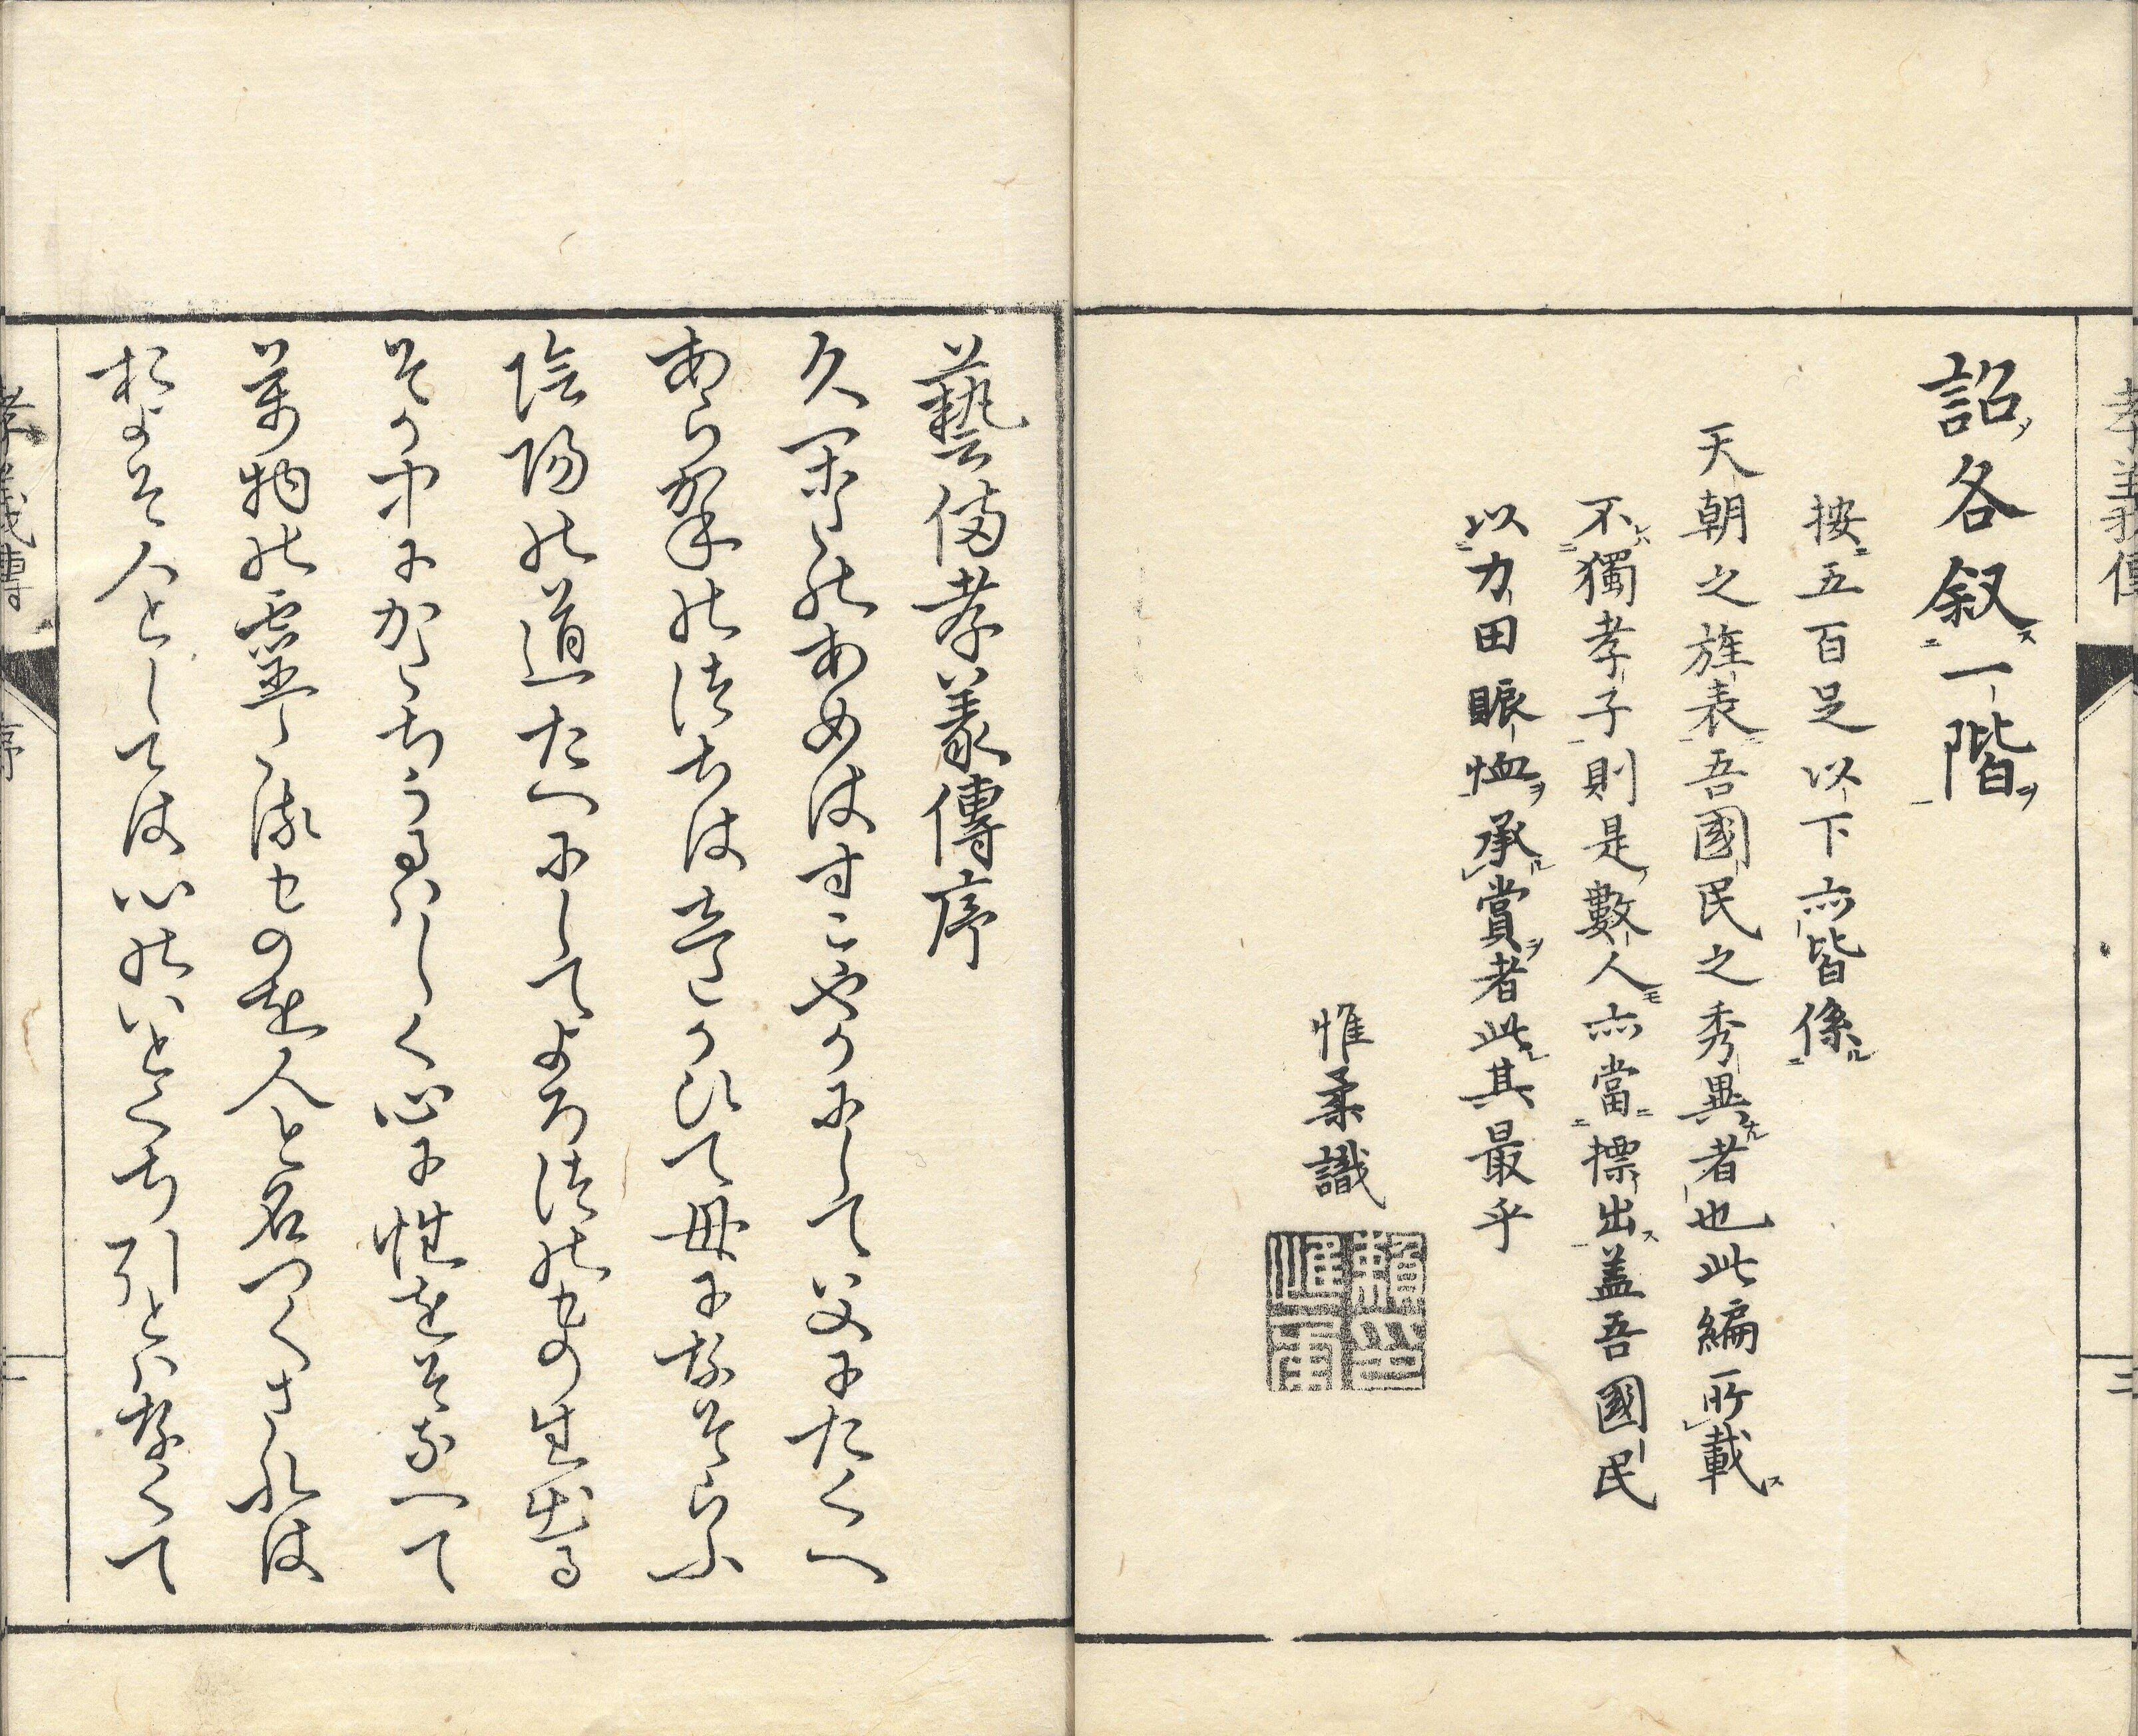 孝義傳
三
詔各叙一階
按五百足以下亦皆係
天朝之旌表吾國民之秀異者也此編所載
不獨孝子則是數人亦當標出蓋吾國民
以力田賑恤承賞者此其最乎
惟柔識
賴惟柔印
藝備孝義傳序
久かたのあめはすこやかにして父にたくへ
あらかねのつちはしたかひて母になそらふ
陰陽の道たへにしてよろつのもの生出る
そか中にかたちうるはしく心に性をそなへて
萬物の靈たるものを人と名つくされは
およそ人としては心のいとくち引とはなくて
孝義傳
序